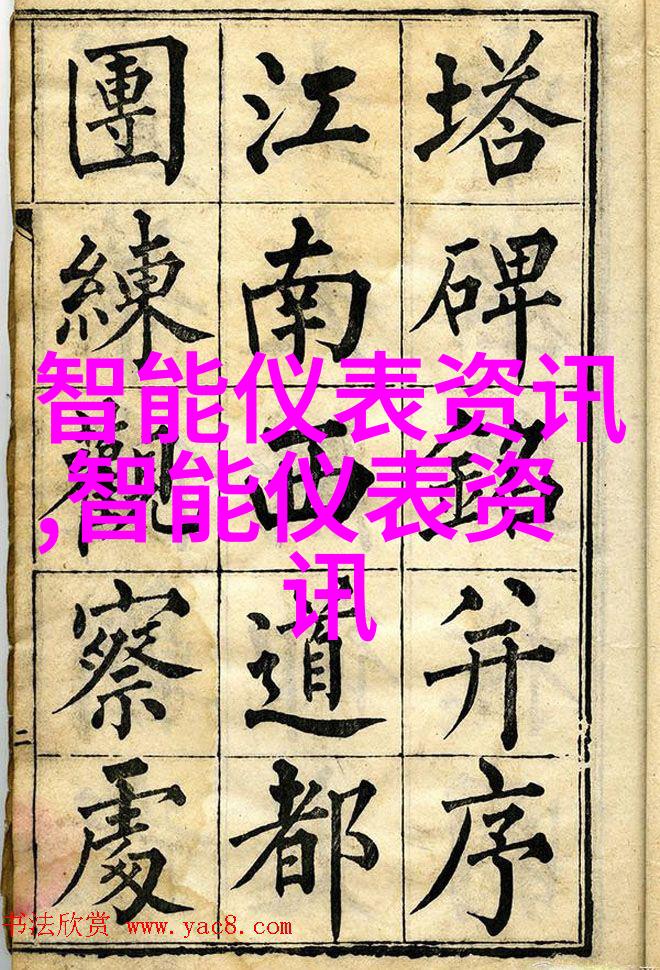 塔碑銘并序
江南西道都
團練觀察處
二
智能仪表资讯
,智能仪表资
讯
书法欣赏 www.yac8.com